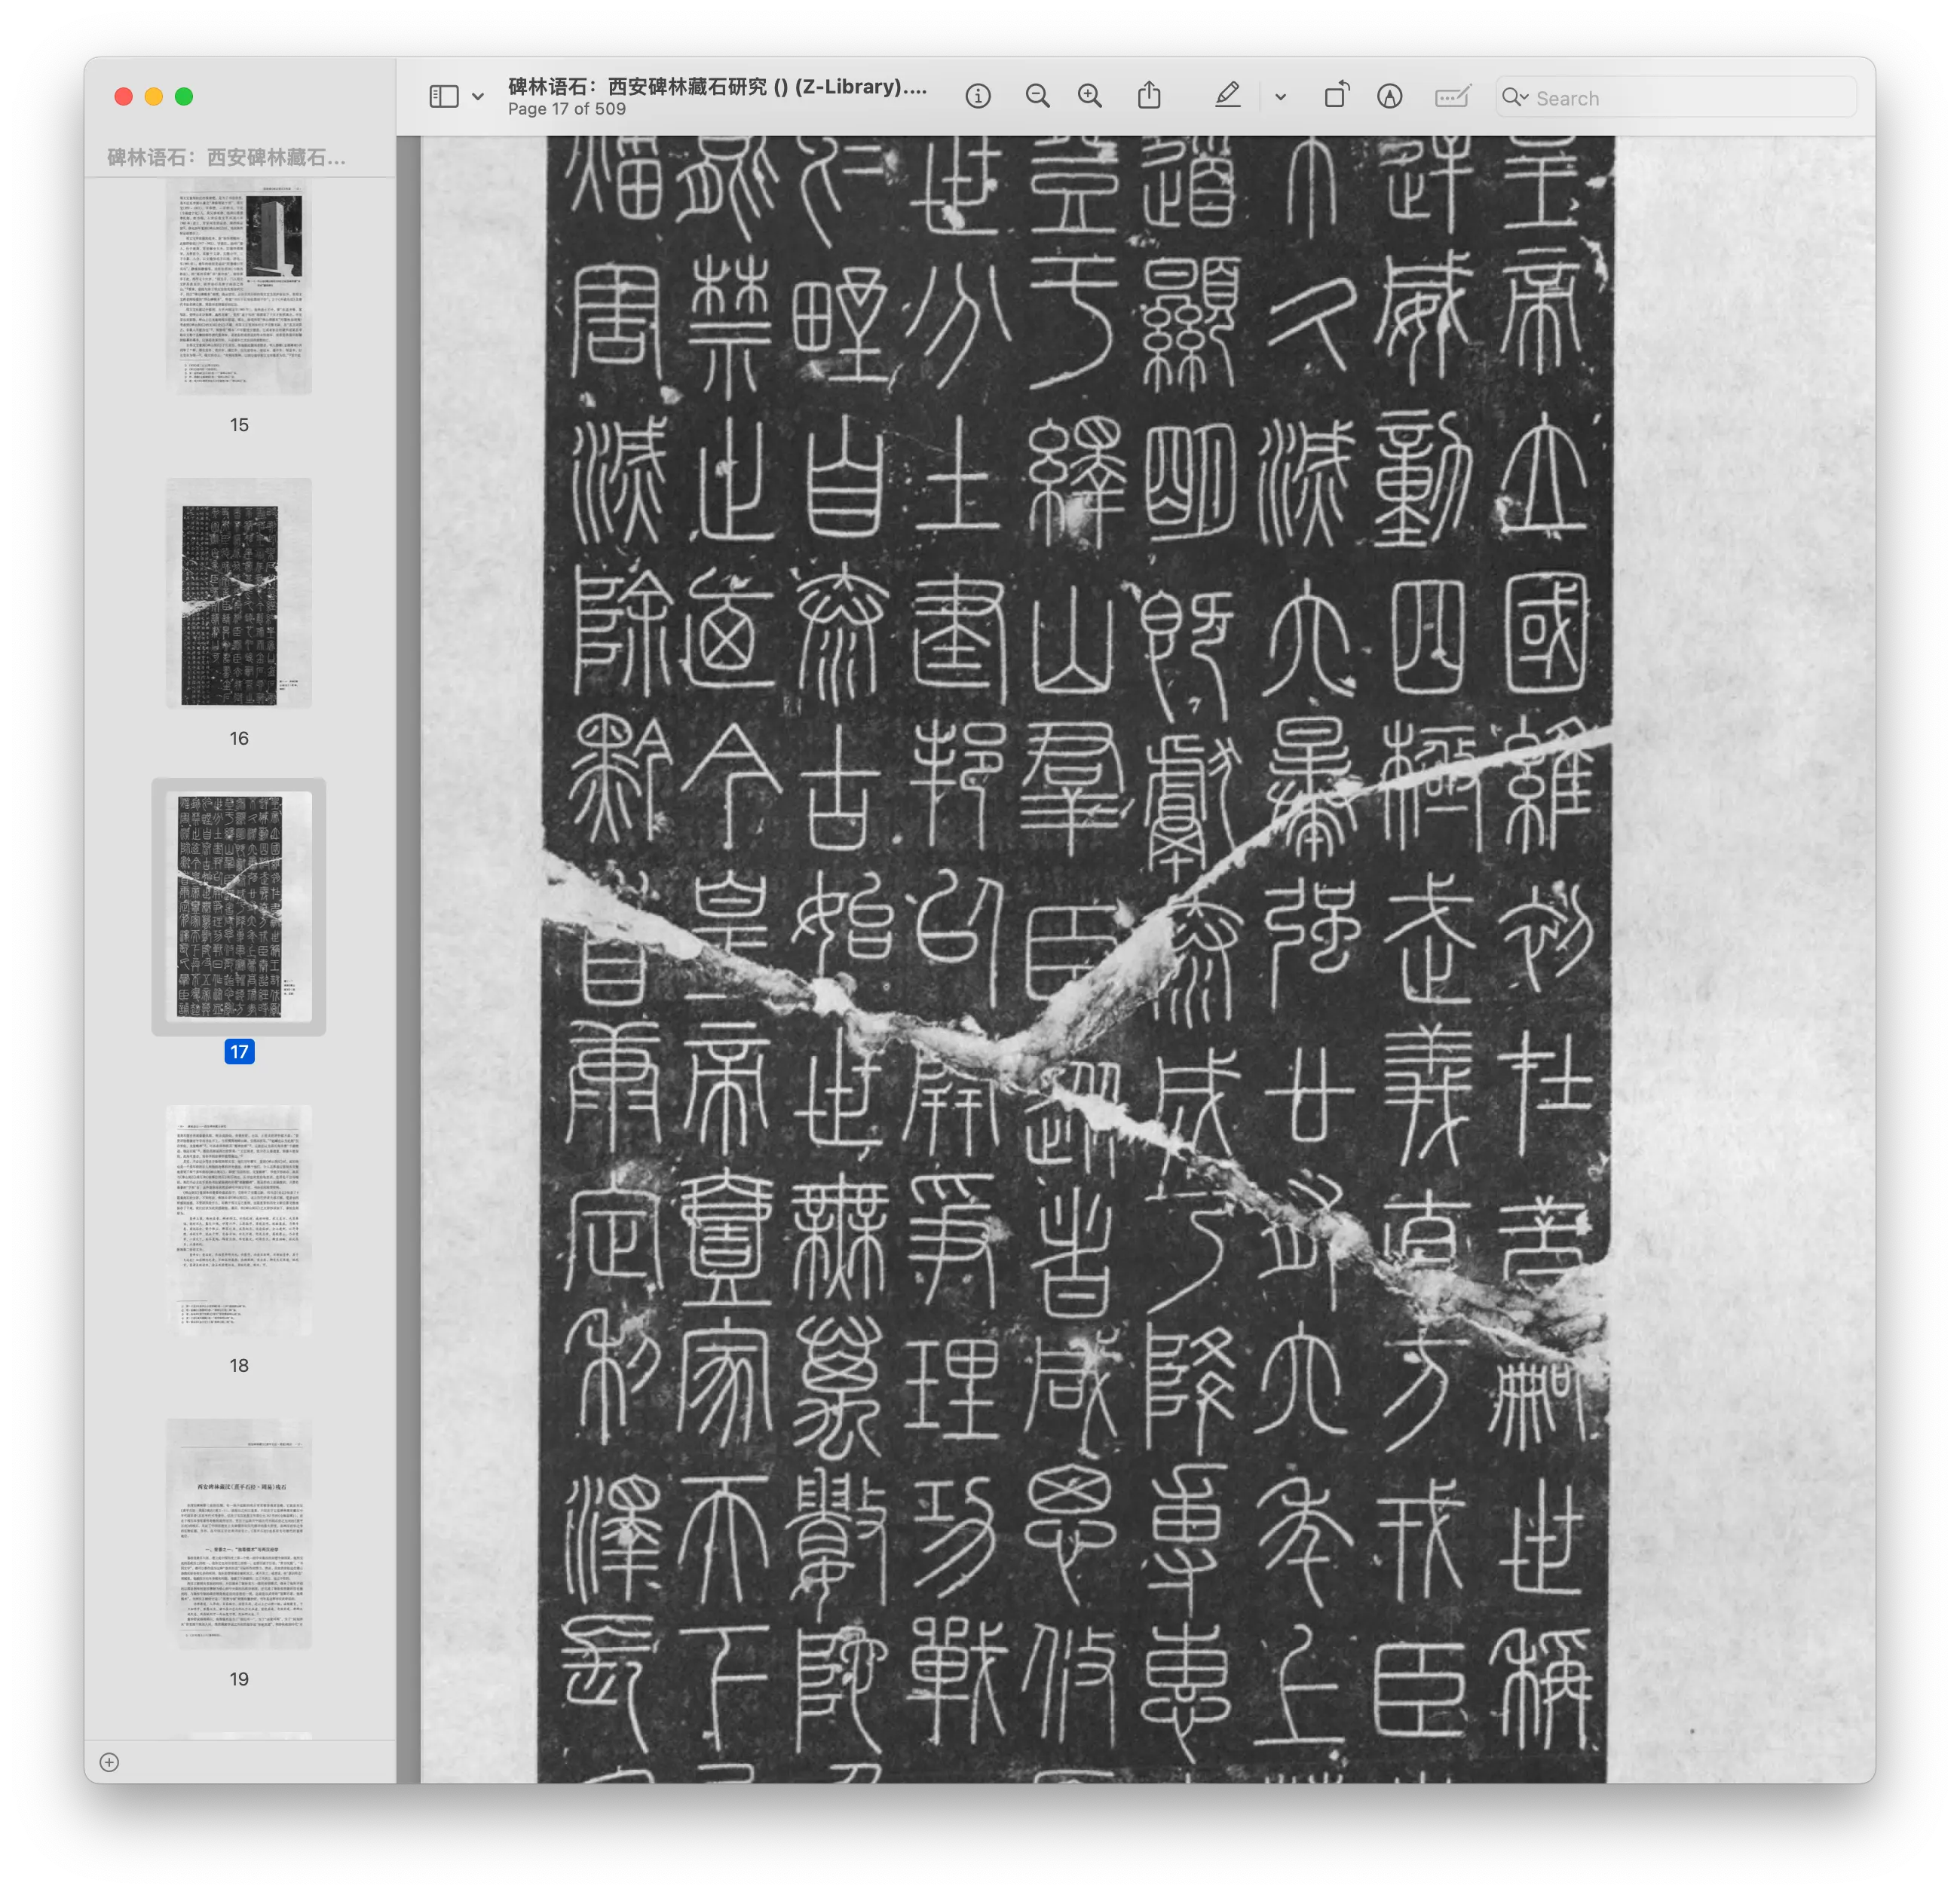 碑林语石：西安碑林藏石研究 () (Z-Library)....
Page 17 of 509
Search
碑林语石：西安碑林藏石...
15
16
17
18
19
皇帝立國維初在昔嗣世稱
逆威動四極武義直方戎臣
不久滅六暴強廿有六年上
道顯明既獻泰成乃降專惠
登于繹山羣臣從者咸思攸
世分土建邦以開爭理功戰
於野自泰古始世無萬數陀
能禁止迺今皇帝壹家天下
害滅除黔首康定利澤長